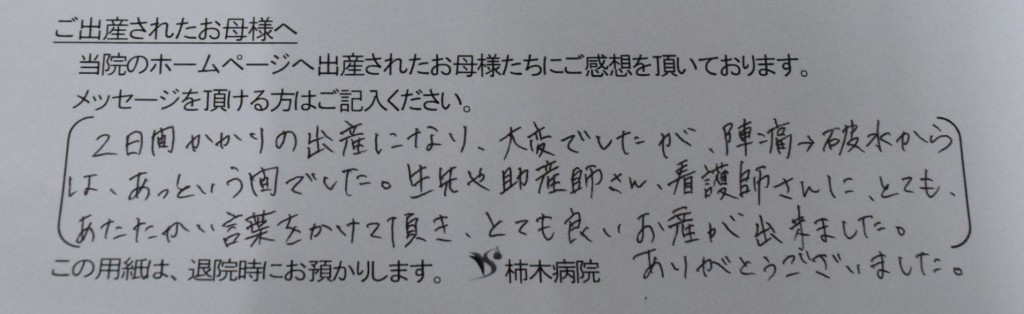 ご出産されたお母様へ
当院のホームページへ出産されたお母様たちにご感想を頂いております。
メッセージを頂ける方はご記入ください。
2日間かかりの出産になり、大変でしたが、陣痛→破水から
は、あっという間でした。先生や助産師さん、看護師さんに、とても、
あたたかい言葉をかけて頂き、とても良いお産が出来ました。
ありがとうございました。
この用紙は、退院時にお預かりします。 柿木病院